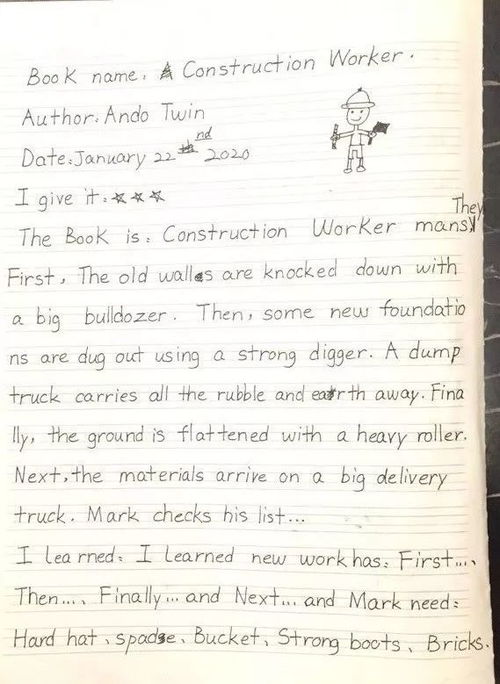 Book name. A Construction Worker.
Author. Ando Twin
Date. January 22nd 2020
I give it. ☆☆☆
The Book is. Construction Worker mans. They
First, The old walls are knocked down with
a big bulldozer. Then, some new foundatio
ns are dug out using a strong digger. A dump
truck carries all the rubble and earth away. Fina
lly, the ground is flattened with a heavy roller.
Next, the materials arrive on a big delivery
truck. Mark checks his list...
I learned: I Learned new work has: First...、
Then...、Finally... and Next... and Mark need:
Hard hat、spade、Bucket、Strong boots、Bricks.